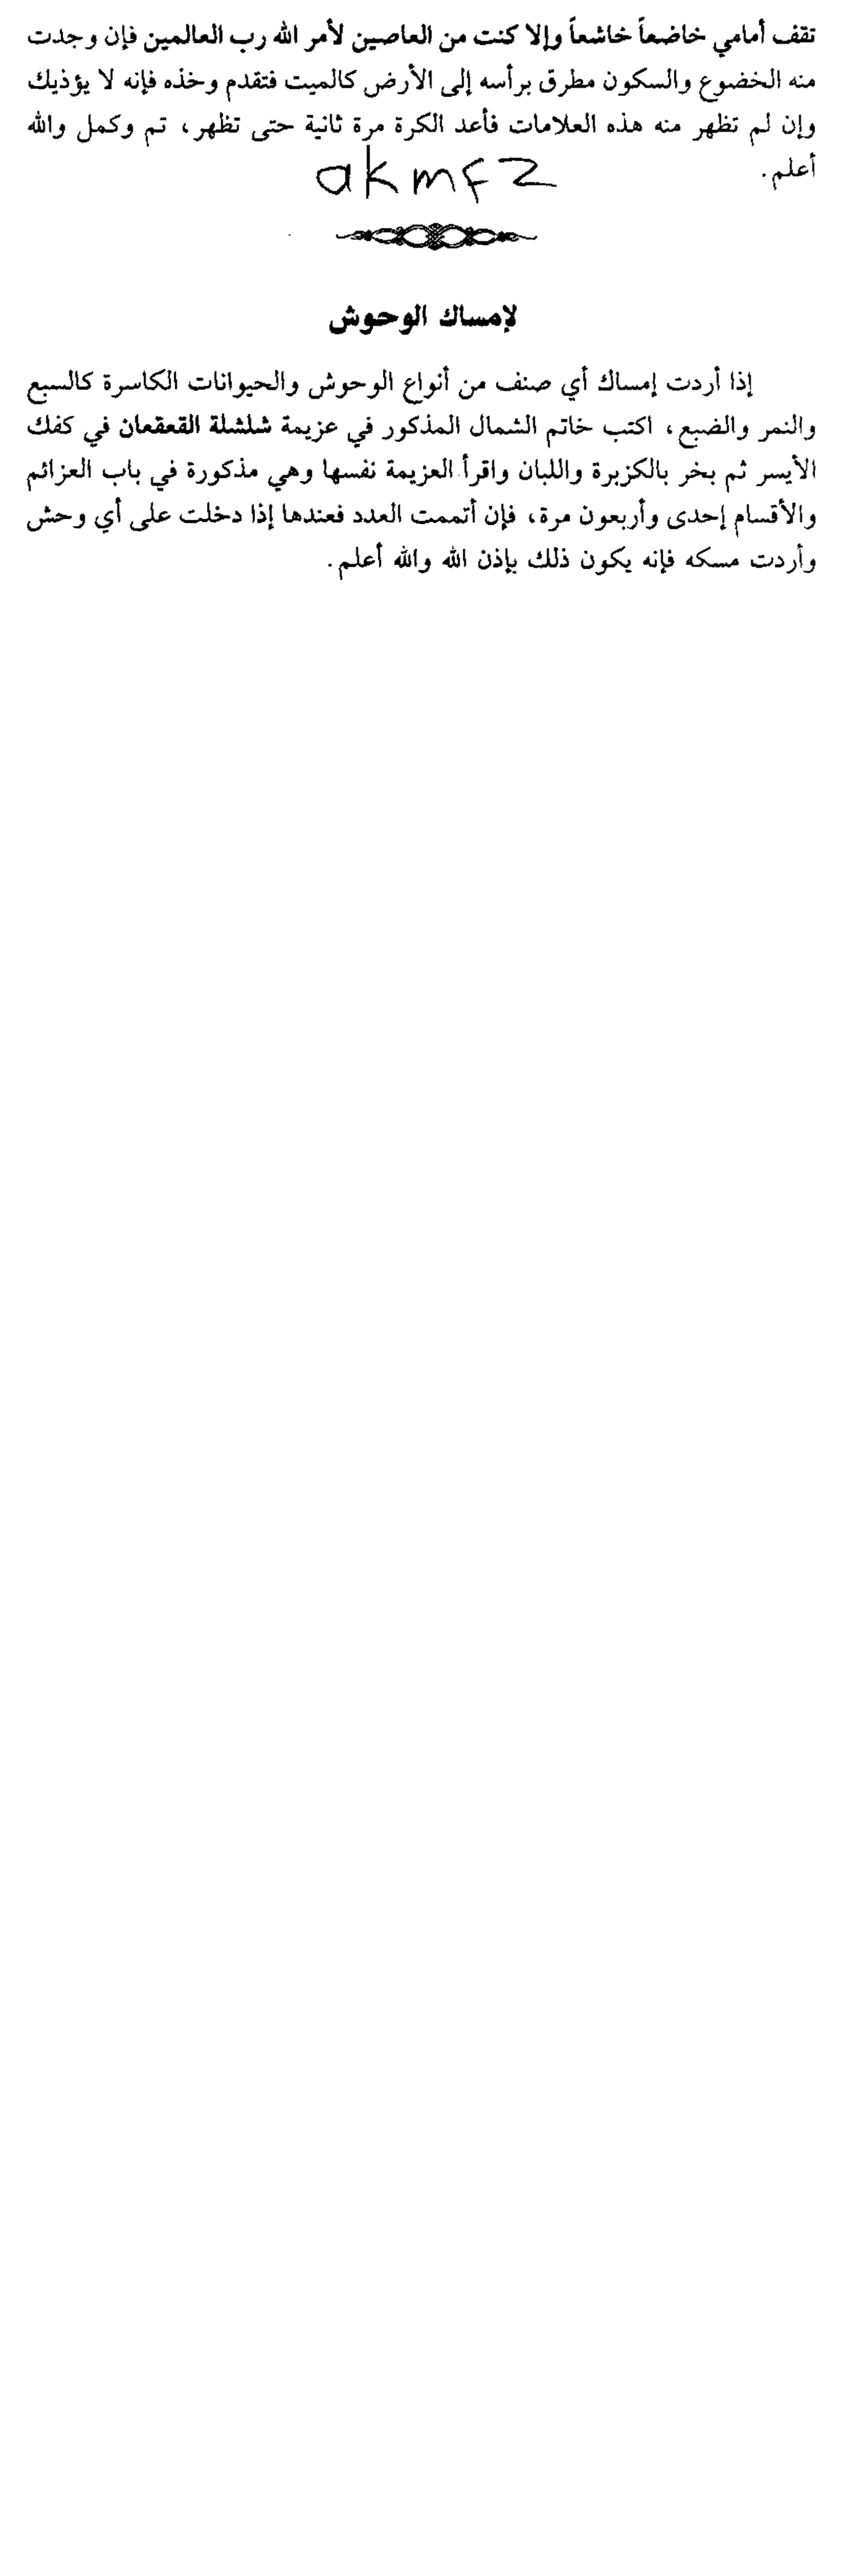 تقف أمامي خاضعاً خاشعاً وإلا كنت من العاصين لأمر الله رب العالمين فإن وجدت
منه الخضوع والسكون مطرق برأسه إلى الأرض كالميت فتقدم وخذه فإنه لا يؤذيك
وإن لم تظهر منه هذه العلامات فأعد الكرة مرة ثانية حتى تظهر، تم وكمل والله
أعلم.
akmfz
لإمساك الوحوش
إذا أردت إمساك أي صنف من أنواع الوحوش والحيوانات الكاسرة كالسبع
والنمر والضبع، اكتب خاتم الشمال المذكور في عزيمة شلشلة القعقعان في كفك
الأيسر ثم بخر بالكزبرة واللبان واقرأ العزيمة نفسها وهي مذكورة في باب العزائم
والأقسام إحدى وأربعون مرة، فإن أتممت العدد فعندها إذا دخلت على أي وحش
وأردت مسكه فإنه يكون ذلك بإذن الله والله أعلم.